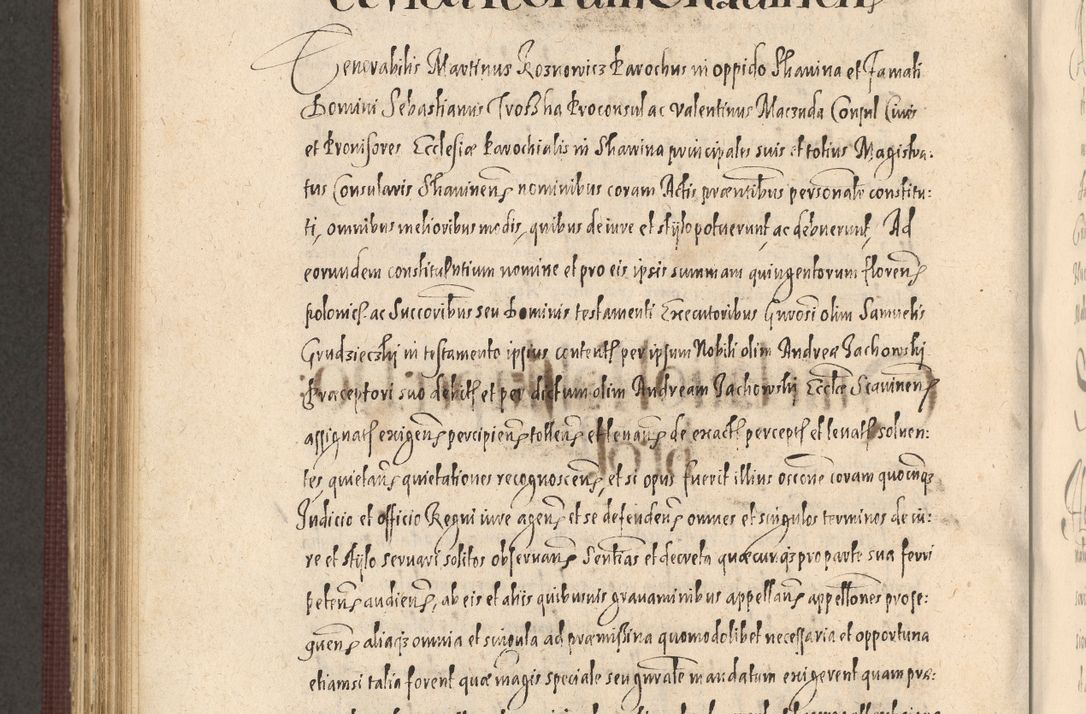 et vice theorum Skauinen
Venerabilis Martinus Roznowicz Parochus in oppido Skawina et Famati
Domini Sebastianus Trosska Proconsul ac Valentinus Maczuda Consul Ciues
et Prouisores Ecclesiæ Parochialis in Skawina principales suis et totius Magistra:
tus Consularis Skauinen nominibus coram Actis præsentibus personalr constitu:
ti, omnibus melioribus modis, quibus de iure et stylo potuerunt, ac debuerunt, Ad
eorundem constituentium nomine et pro eis ipsis summam quingentorum floren
polonic. ac Succoribus seu Dominis testamenti Executoribus Gnrosi olim Samuelis
Grudzieczky in testamento ipsius content per ipsum Nobili olim Andreæ Zachowsky
Præceptori suo debit et per dictum olim Andream Zachowsky Eccleæ Scauinen
assignat exigen percipien tollen et leuan de exact percept et leuat soluen:
tes quietan quietationes recognoscen, et si opus fuerit illius occone coram quocunq
Judicio et officio Regni iure agen et se defenden omnes et singulos terminos de iu:
re et stylo seruari solitos obseruan Sentias et decreta quæcunqs pro parte sua ferri
peten audien, ab eis et aliis quibusuis grauaminibus appellan appellones prose:
quen aliaqs omnia et singula ad præmissina quomodolibet necessaria et opportuna
etiamsi talia forent quæ magis speciale seu gnrale mandatum exigerent quam præ: